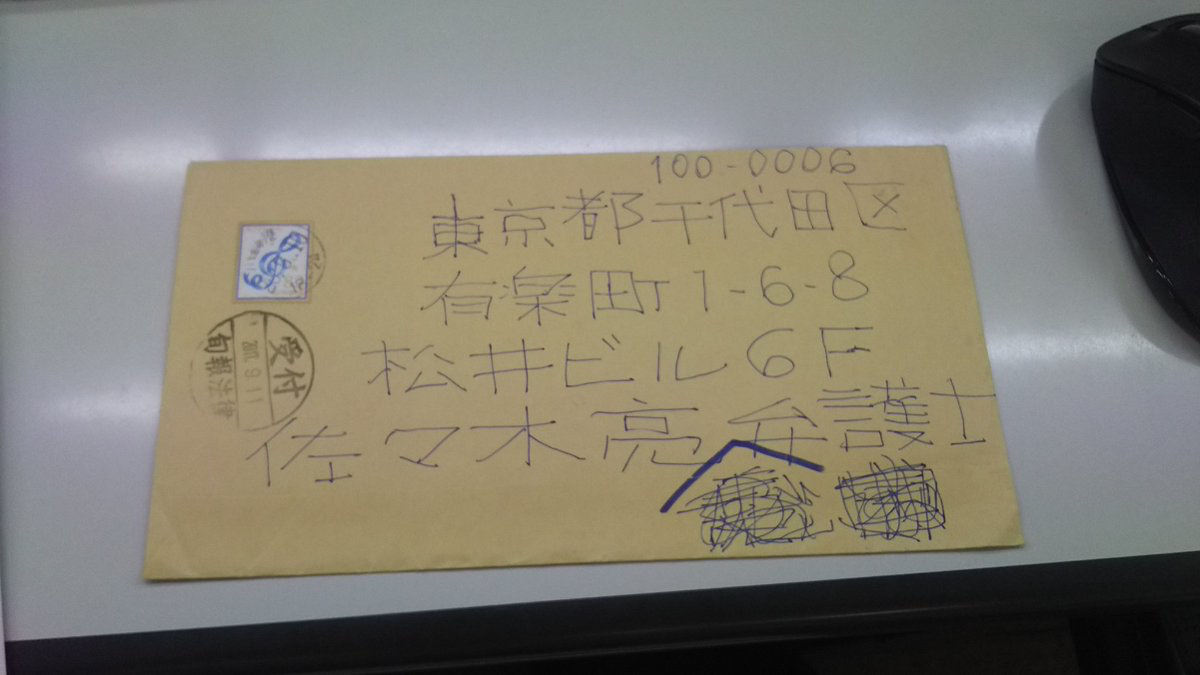 100-0006
東京都千代田区
有楽町1-6-8
松井ビル6F
佐々木亮弁護士
受付
2017. 9. 11
旬報法律